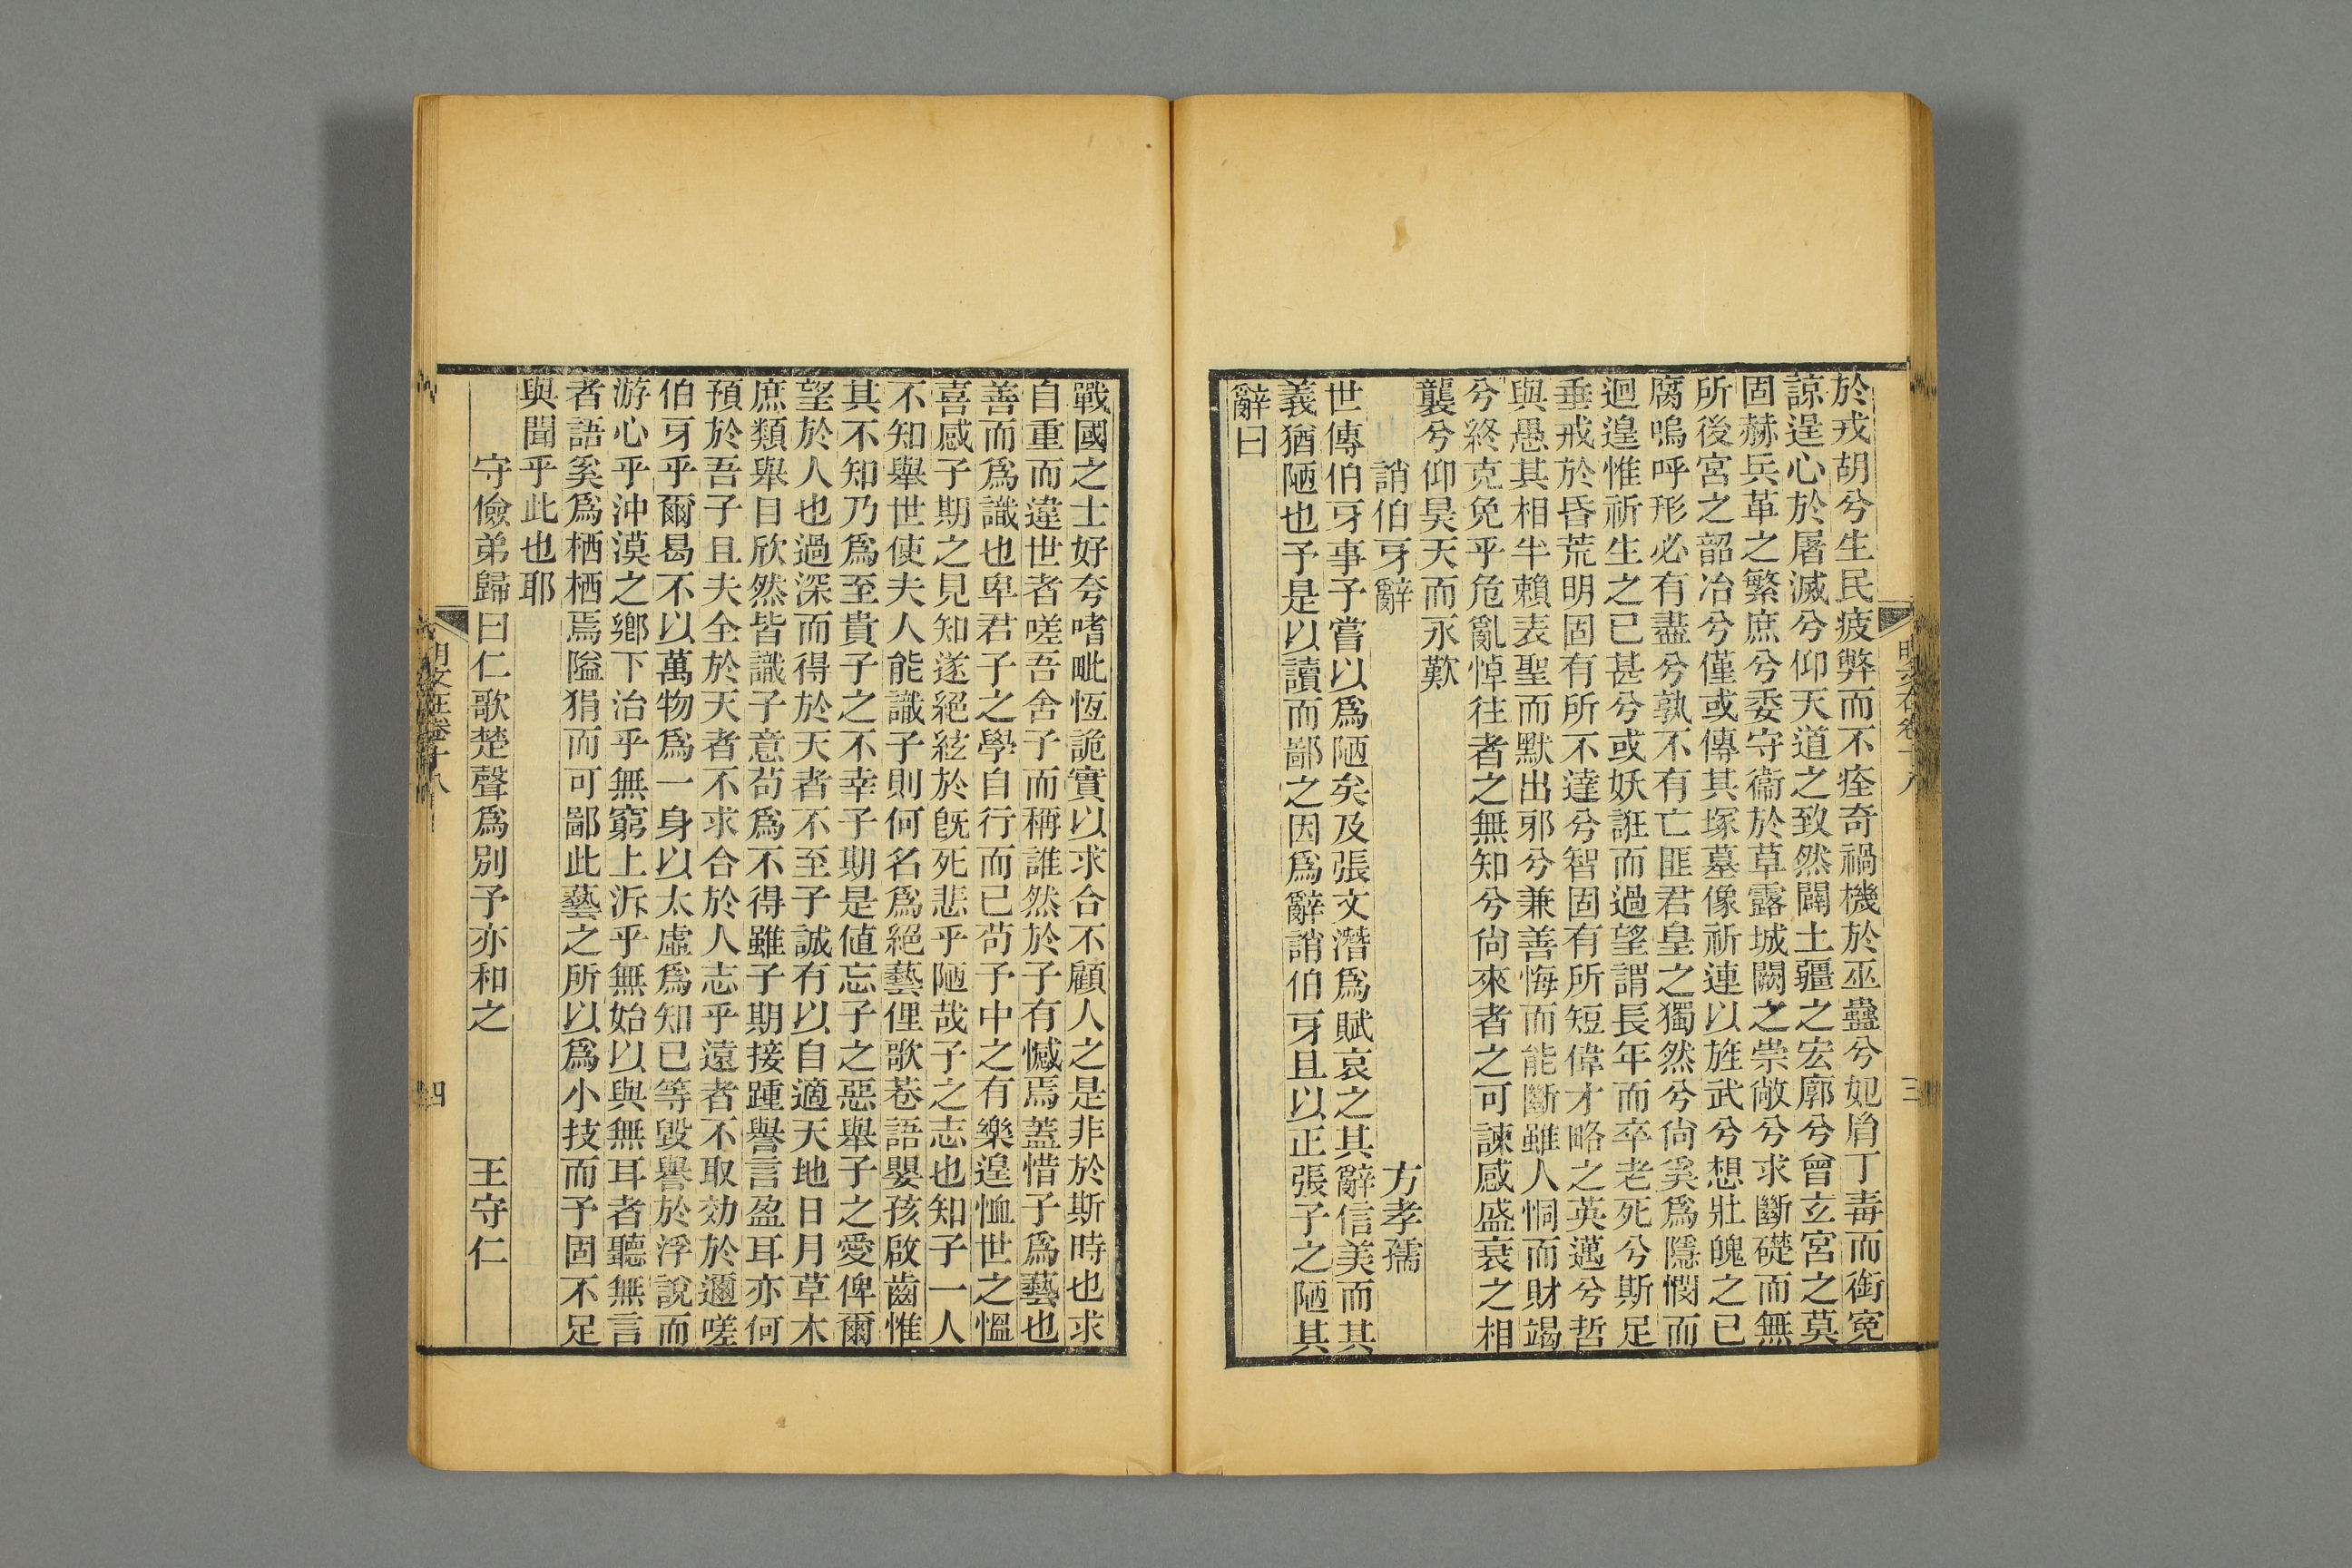 於戎胡兮生民疲弊而不痊奇禍機於巫蠱兮妃胤丁毒而銜冤
諒逞心於屠滅兮仰天道之致然闢土疆之宏廓兮曾玄宮之莫
固赫兵革之繁庶兮委守衞於草露城闕之崇敞兮求斷礎而無
所後宮之韶冶兮僅或傳其塚墓像祈連以旌武兮想壯魄之已
腐嗚呼形必有盡兮孰不有亡匪君皇之獨然兮尙奚爲隱憫而
迴遑惟祈生之已甚兮或妖誑而過望謂長年而卒老死兮斯足
垂戒於昏荒明固有所不達兮智固有所短偉才略之英邁兮哲
與愚其相半賴表聖而默出邪兮兼善悔而能斷雖人恫而財竭
兮終克免乎危亂悼往者之無知兮尙來者之可諫感盛衰之相
襲兮仰昊天而永歎
誚伯牙辭 方孝孺
世傳伯牙事予嘗以爲陋矣及張文潛爲賦哀之其辭信美而其
義猶陋也予是以讀而鄙之因爲辭誚伯牙且以正張子之陋其
辭曰
戰國之士好夸嗜毗恆詭實以求合不顧人之是非於斯時也求
自重而違世者嗟吾舍子而稱誰然於子有憾焉蓋惜子爲藝也
善而爲識也卑君子之學自行而已苟予中之有樂遑恤世之慍
喜感子期之見知遂絕絃於旣死悲乎陋哉子之志也知子一人
不知舉世使夫人能識子則何名爲絕藝俚歌巷語嬰孩啟齒惟
其不知乃爲至貴子之不幸子期是値忘子之惡舉子之愛俾爾
望於人也過深而得於天者不至子誠有以自適天地日月草木
庶類舉目欣然皆識子意苟爲不得雖子期接踵譽言盈耳亦何
預於吾子且夫全於天者不求合於人志乎遠者不取効於邇嗟
伯牙乎爾曷不以萬物爲一身以太虛爲知己等毀譽於浮說而
游心乎沖漠之鄕下治乎無窮上泝乎無始以與無耳者聽無言
者語奚爲栖栖焉隘狷而可鄙此藝之所以爲小技而予固不足
與聞乎此也耶
守儉弟歸曰仁歌楚聲爲別予亦和之 王守仁
卷十八
四